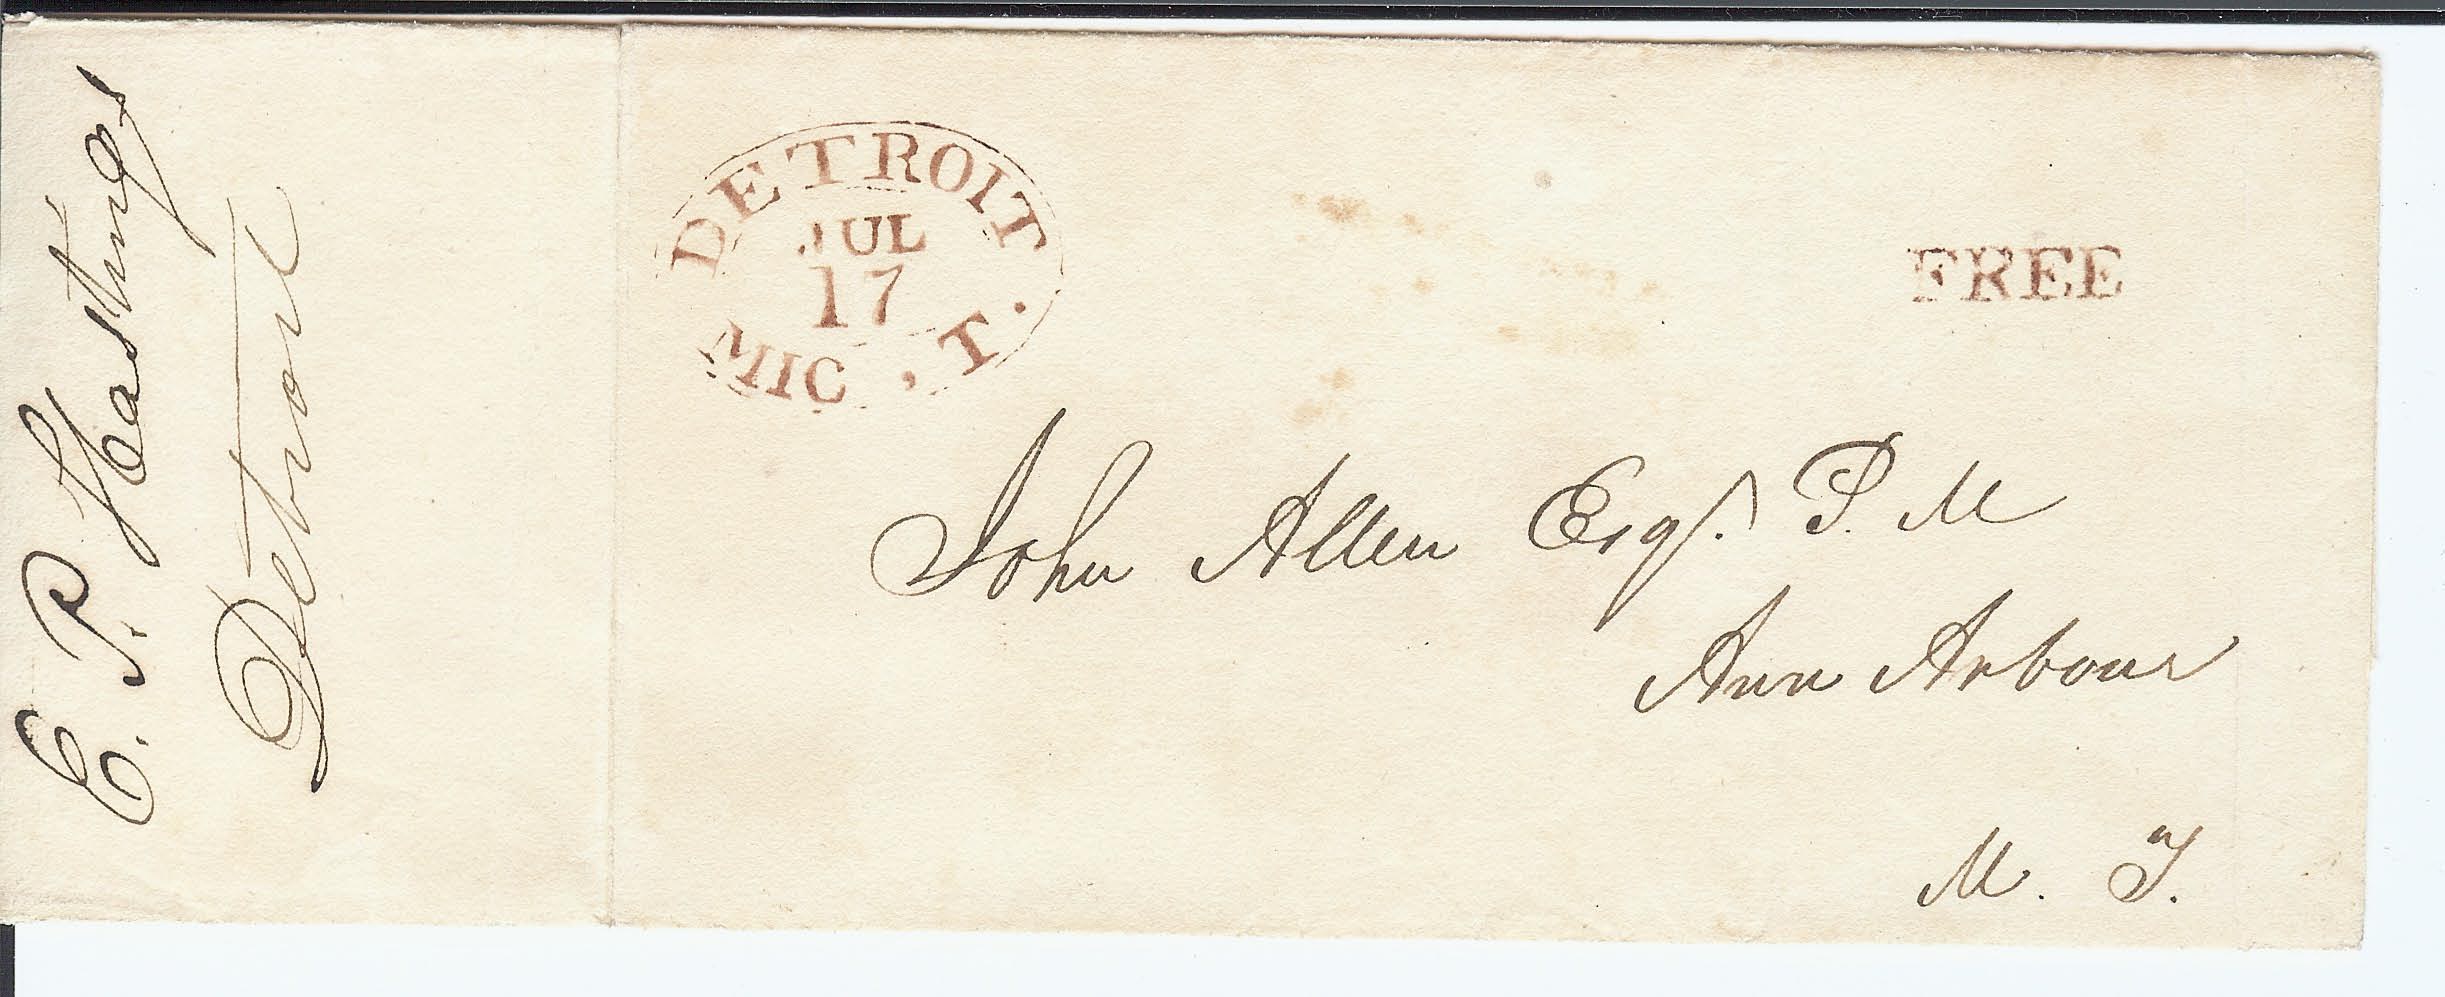 E. P. Hastings
Detroit
DETROIT
JUL
17
MIC. T.
FREE
John Allen Esqr. P. M
Ann Arbour
M. T.